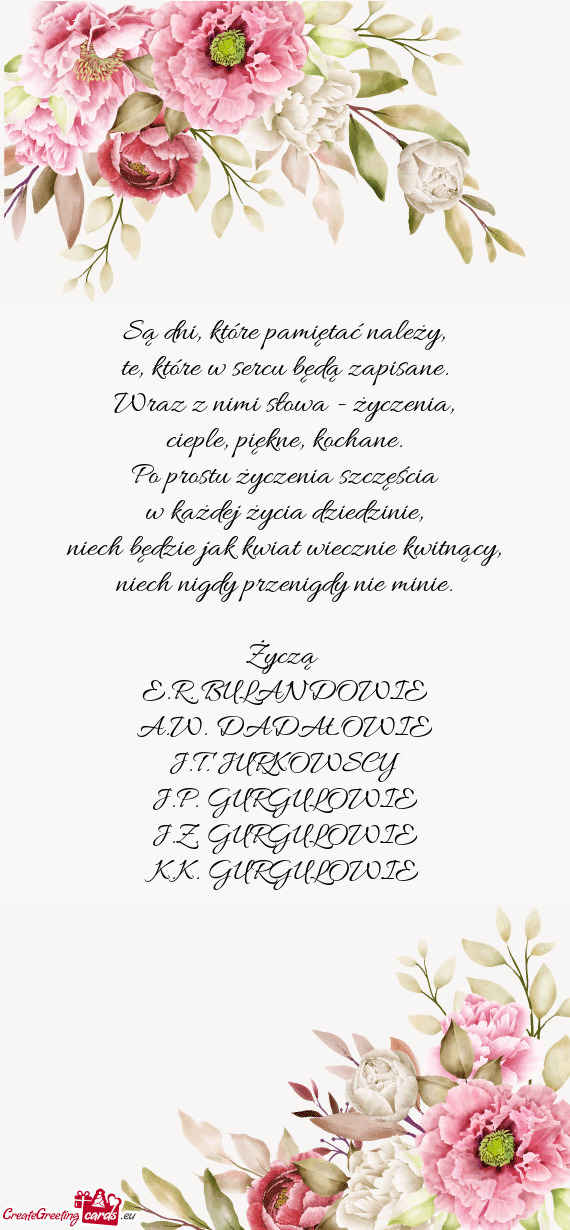 Są dni, które pamiętać należy,
te, które w sercu będą zapisane.
Wraz z nimi słowa - życzenia,
cieple, piękne, kochane.
Po prostu życzenia szczęścia
w każdej życia dziedzinie,
niech będzie jak kwiat wiecznie kwitnący,
niech nigdy przenigdy nie minie.
Życzą
E.R. BULANDOWIE
A.W. DADAŁOWIE
J.T. JURKOWSCY
J.P. GURGULOWIE
J.Z. GURGULOWIE
K.K. GURGULOWIE
CreateGreeting cards .eu